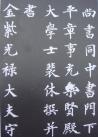 尚書同中書門下
平章事充集賢殿
大學士裴休撰并
書
金紫光禄大夫守